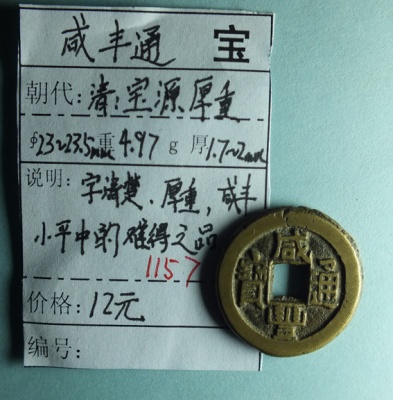 咸丰通 宝
朝代：清：宝源厚重
∮23~23.5mm重4.97 g 厚1.7~2mm
说明：字清楚、厚重，咸丰
小平中的难得之品
1157
价格：12元
编号：
咸豐通寶